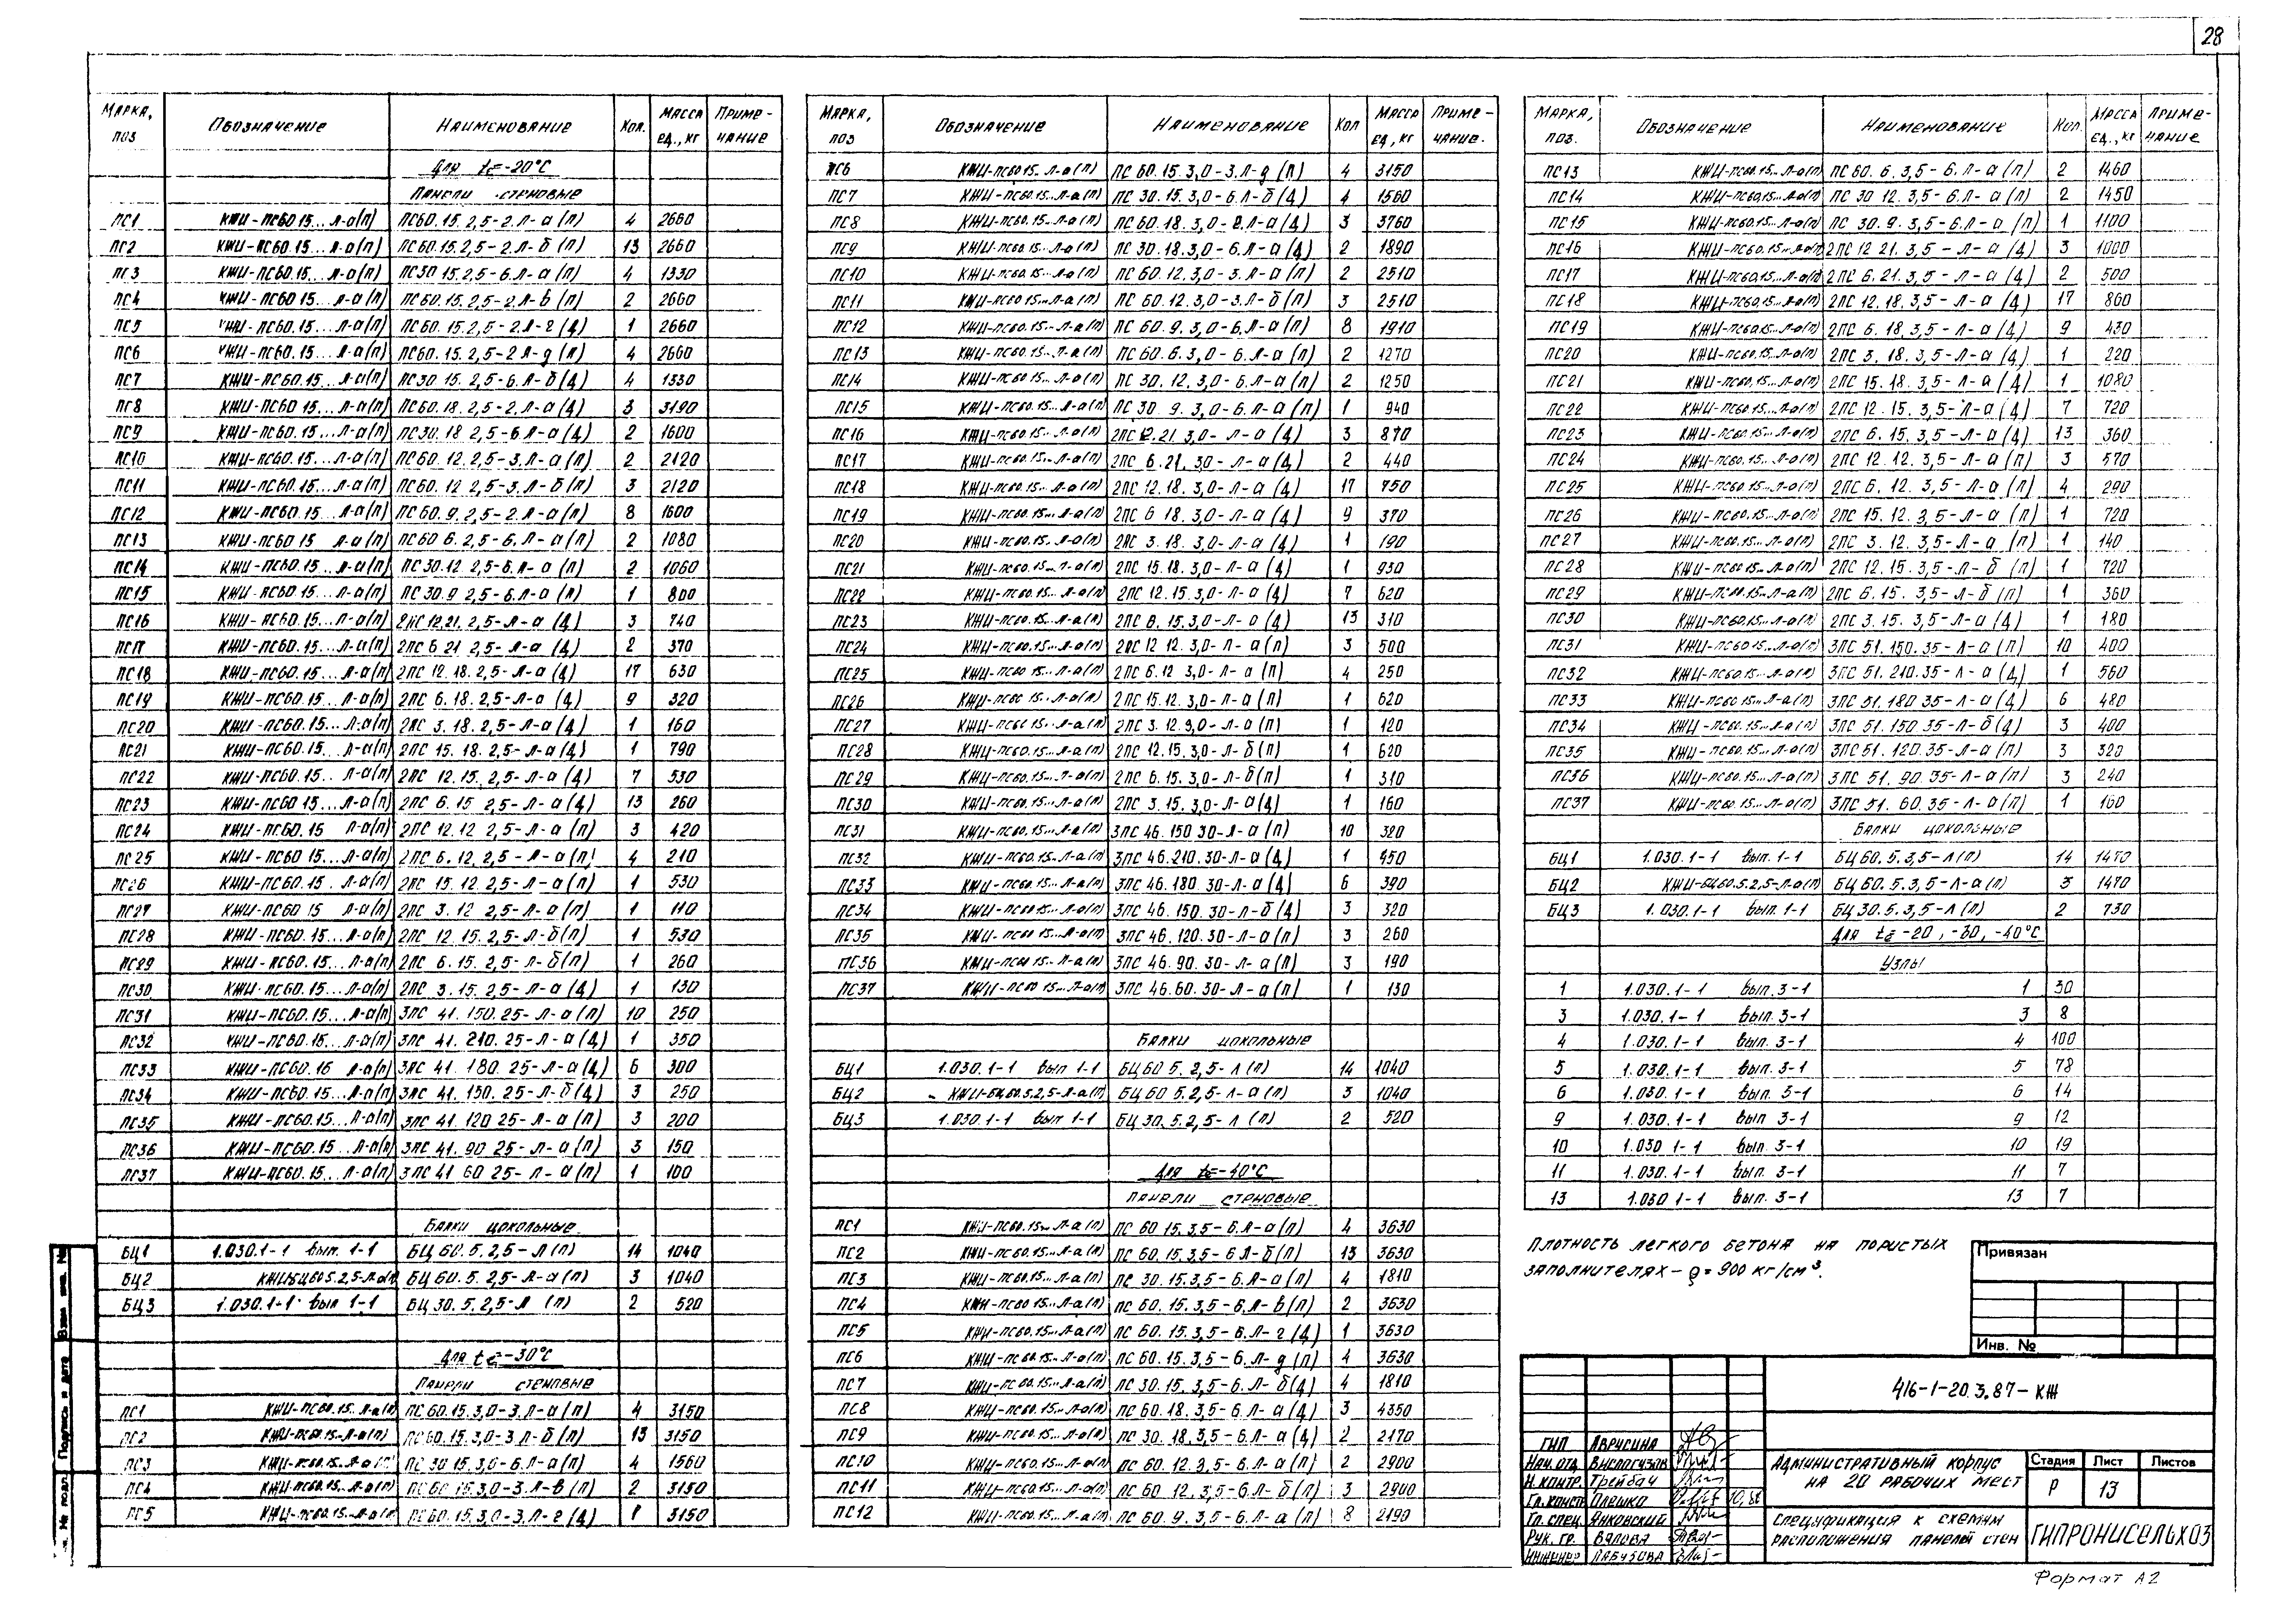 28
Марка, поз Обозначение Наименование Кол. Масса ед., кг Приме-чание
Для t=-20°С
Панели стеновые
ПС1 КЖИ-ПС60.15...Л-а(п) ПС60.15.2,5-2.Л-а(п) 4 2660
ПС2 КЖИ-ПС60.15...Л-а(п) ПС60.15.2,5-2.Л-б(п) 13 2660
ПС3 КЖИ-ПС60.15...Л-а(п) ПС30 15.2,5-6.Л-а(п) 4 1330
ПС4 КЖИ-ПС60 15...Л-а(п) ПС60.15.2,5-2.Л-в(п) 2 2660
ПС5 КЖИ-ПС60.15...Л-а(п) ПС60.15.2,5-2Л-г(Д) 1 2660
ПС6 КЖИ-ПС60.15...Л-а(п) ПС60.15.2,5-2Л-д(п) 4 2660
ПС7 КЖИ-ПС60.15...Л-а(п) ПС30 15.2,5-6.Л-б(Д) 4 1330
ПС8 КЖИ-ПС60 15...Л-а(п) ПС60.18.2,5-2.Л-а(Д) 3 3190
ПС9 КЖИ-ПС60.15...Л-а(п) ПС30.18 2,5-6Л-а(Д) 2 1600
ПС10 КЖИ-ПС60.15...Л-а(п) ПС60.12.2,5-3.Л-а(п) 2 2120
ПС11 КЖИ-ПС60.15...Л-а(п) ПС60.12 2,5-3.Л-б(п) 3 2120
ПС12 КЖИ-ПС60.15 Л-а(п) ПС60.9.2,5-2.Л-а(п) 8 1600
ПС13 КЖИ-ПС60 15 Л-а(п) ПС60 6.2,5-6.Л-а(п) 2 1080
ПС14 КЖИ-ПС60.15...Л-а(п) ПС30.12 2,5-6.Л-а(п) 2 1060
ПС15 КЖИ-ПС60 15...Л-а(п) ПС30.9 2,5-6.Л-а(п) 1 800
ПС16 КЖИ-ПС60.15...Л-а(п) 2ПС12.21.2,5-Л-а(Д) 3 740
ПС17 КЖИ-ПС60.15...Л-а(п) 2ПС6.21 2,5-Л-а(Д) 2 370
ПС18 КЖИ-ПС60.15...Л-а(п) 2ПС 12.18.2,5-Л-а(Д) 17 630
ПС19 КЖИ-ПС60.15...Л-а(п) 2ПС 6.18.2,5-Л-а(Д) 9 320
ПС20 КЖИ-ПС60.15...Л-а(п) 2ПС 3.18.2,5-Л-а(Д) 1 160
ПС21 КЖИ-ПС60.15. Л-а(п) 2ПС 15.18.2,5-Л-а(Д) 1 790
ПС22 КЖИ-ПС60.15.. Л-а(п) 2ПС 12.15.2,5-Л-а(Д) 7 530
ПС23 КЖИ-ПС60 15...Л-а(п) 2ПС 6.15 2,5-Л-а(Д) 13 260
ПС24 КЖИ-ПС60.15 Л-а(п) 2ПС 12.12 2,5-Л-а(п) 3 420
ПС25 КЖИ-ПС60 15...Л-а(п) 2ПС 6.12.2,5-Л-а(п) 4 210
ПС26 КЖИ-ПС60.15 . Л-а(п) 2ПС 15.12.2,5-Л-а(п) 1 530
ПС27 КЖИ-ПС60 15 Л-а(п) 2ПС 3.12 2,5-Л-а(п) 1 110
ПС28 КЖИ-ПС60.15...Л-а(п) 2ПС 12 15.2,5-Л-б(п) 1 530
ПС29 КЖИ-ПС60.15...Л-а(п) 2ПС 6.15.2,5-Л-б(п) 1 260
ПС30 КЖИ-ПС60.15...Л-а(п) 2ПС 3.15.2,5-Л-а(Д) 1 130
ПС31 КЖИ-ПС60.15...Л-а(п) 3ПС 41.150.25-Л-а(п) 10 250
ПС32 КЖИ-ПС60.15...Л-а(п) 3ПС 41.210.25-Л-а(Д) 1 350
ПС33 КЖИ-ПС60.15 Л-а(п) 3ПС 41.180.25-Л-а(Д) 6 300
ПС34 КЖИ-ПС60.15...Л-а(п) 3ПС 41.150.25-Л-б(Д) 3 250
ПС35 КЖИ-ПС60.15...Л-а(п) 3ПС 41.120 25-Л-а(п) 3 200
ПС36 КЖИ-ПС60.15...Л-а(п) 3ПС 41.90 25-Л-а(п) 3 150
ПС37 КЖИ-ПС60.15...Л-а(п) 3ПС 41 60 25-Л-а(п) 1 100
Балки цокольные
БЦ1 1.030.1-1 вып. 1-1 БЦ60.5.2,5-Л(п) 14 1040
БЦ2 КЖИ-БЦ60 5.2,5-Л-а(п) БЦ60.5.2,5-Л-а(п) 3 1040
БЦ3 1.030.1-1 вып 1-1 БЦ30.5.2,5-Л (п) 2 520
Для t=-30°С
Панели стеновые
ПС1 КЖИ-ПС60.15..Л-а(п) ПС60.15.3,0-3.Л-а(п) 4 3150
ПС2 КЖИ-ПС60.15-Л-а(п) ПС60.15.3,0-3 Л-б(п) 13 3150
ПС3 КЖИ-ПС60.15...Л-а(п) ПС30 15.3,0-6.Л-а(п) 4 1560
ПС4 КЖИ-ПС60.15...Л-а(п) ПС60 15.3,0-3.Л-в(п) 2 3150
ПС5 КЖИ-ПС60.15...Л-а(п) ПС60.15.3,0-3.Л-г(Д) 1 3150
Марка, поз Обозначение Наименование Кол Масса ед, кг Приме-чание.
ПС6 КЖИ-ПС60 15.. Л-а(п) ПС 60.15.3,0-3.Л-д(п) 4 3150
ПС7 КЖИ-ПС60.15...Л-а(п) ПС 30.15.3,0-6.Л-б(Д) 4 1560
ПС8 КЖИ-ПС60.15...Л-а(п) ПС 60.18.3,0-2.Л-а(Д) 3 3760
ПС9 КЖИ-ПС60 15...Л-а(п) ПС 30.18.3,0-6.Л-а(Д) 2 1890
ПС10 КЖИ-ПС60.15...Л-а(п) ПС 60.12.3,0-3.Л-а(п) 2 2510
ПС11 КЖИ-ПС60 15...Л-а(п) ПС 60.12.3,0-3.Л-б(п) 3 2510
ПС12 КЖИ-ПС60.15...Л-а(п) ПС 60.9.3,0-6.Л-а(п) 8 1910
ПС13 КЖИ-ПС60.15...Л-а(п) ПС 60.6.3,0-6.Л-а(п) 2 1270
ПС14 КЖИ-ПС60 15...Л-а(п) ПС 30.12.3,0-6.Л-а(п) 2 1250
ПС15 КЖИ-ПС60.15...Л-а(п) ПС 30 9.3,0-6.Л-а(п) 1 940
ПС16 КЖИ-ПС60.15...Л-а(п) 2ПС12.21.3,0-Л-а(Д) 3 870
ПС17 КЖИ-ПС60.15...Л-а(п) 2ПС 6.21.3,0-Л-а(Д) 2 440
ПС18 КЖИ-ПС60.15...Л-а(п) 2ПС 12.18.3,0-Л-а(Д) 17 750
ПС19 КЖИ-ПС60.15...Л-а(п) 2ПС 6 18.3,0-Л-а(Д) 9 370
ПС20 КЖИ-ПС60.15...Л-а(п) 2ПС 3.18.3,0-Л-а(Д) 1 190
ПС21 КЖИ-ПС60.15...Л-а(п) 2ПС 15.18.3,0-Л-а(Д) 1 930
ПС22 КЖИ-ПС60.15...Л-а(п) 2ПС 12.15.3,0-Л-а(Д) 7 620
ПС23 КЖИ-ПС60.15...Л-а(п) 2ПС 6.15.3,0-Л-а(Д) 13 310
ПС24 КЖИ-ПС60.15...Л-а(п) 2ПС 12 12.3,0-Л-а(п) 3 500
ПС25 КЖИ-ПС60 15...Л-а(п) 2ПС 6.12 3,0-Л-а(п) 4 250
ПС26 КЖИ-ПС60 15...Л-а(п) 2ПС 15.12.3,0-Л-а(п) 1 620
ПС27 КЖИ-ПС60 15...Л-а(п) 2ПС 3.12.3,0-Л-а(п) 1 120
ПС28 КЖИ-ПС60.15...Л-а(п) 2ПС 12.15.3,0-Л-б(п) 1 620
ПС29 КЖИ-ПС60.15...Л-а(п) 2ПС 6.15.3,0-Л-б(п) 1 310
ПС30 КЖИ-ПС60.15...Л-а(п) 2ПС 3.15.3,0-Л-а(Д) 1 160
ПС31 КЖИ-ПС60.15...Л-а(п) 3ПС 46.150 30-Л-а(п) 10 320
ПС32 КЖИ-ПС60.15...Л-а(п) 3ПС 46.210.30-Л-а(Д) 1 450
ПС33 КЖИ-ПС60.15...Л-а(п) 3ПС 46.180.30-Л-а(Д) 6 390
ПС34 КЖИ-ПС60 15...Л-а(п) 3ПС 46.150.30-Л-б(Д) 3 320
ПС35 КЖИ-ПС60 15...Л-а(п) 3ПС 46.120.30-Л-а(п) 3 260
ПС36 КЖИ-ПС60 15...Л-а(п) 3ПС 46.90.30-Л-а(п) 3 190
ПС37 КЖИ-ПС60 15...Л-а(п) 3ПС 46.60.30-Л-а(п) 1 130
Балки цокольные
БЦ1 1.030.1-1 вып 1-1 БЦ60 5.2,5-Л(п) 14 1040
БЦ2 КЖИ-БЦ60.5.2,5-Л-а(п) БЦ60 5.2,5-Л-а(п) 3 1040
БЦ3 1.030.1-1 вып 1-1 БЦ30.5.2,5-Л (п) 2 520
Для t=-40°С
Панели стеновые
ПС1 КЖИ-ПС60.15...Л-а(п) ПС 60 15.3,5-6.Л-а(п) 4 3630
ПС2 КЖИ-ПС60.15...Л-а(п) ПС 60.15.3,5-6 Л-б(п) 13 3630
ПС3 КЖИ-ПС60.15...Л-а(п) ПС 30.15.3,5-6.Л-а(п) 4 1810
ПС4 КЖИ-ПС60 15...Л-а(п) ПС 60.15.3,5-6.Л-в(п) 2 3630
ПС5 КЖИ-ПС60.15...Л-а(п) ПС 60.15.3,5-6.Л-г(Д) 1 3630
ПС6 КЖИ-ПС60.15...Л-а(п) ПС 60.15.3,5-6.Л-д(п) 4 3630
ПС7 КЖИ-ПС60.15...Л-а(п) ПС 30.15.3,5-6.Л-б(Д) 4 1810
ПС8 КЖИ-ПС60.15...Л-а(п) ПС 60.18.3,5-6.Л-а(Д) 3 4350
ПС9 КЖИ-ПС60.15...Л-а(п) ПС 30.18.3,5-6.Л-а(Д) 2 2170
ПС10 КЖИ-ПС60.15...Л-а(п) ПС 60.12.3,5-6.Л-а(п) 2 2900
ПС11 КЖИ-ПС60.15...Л-а(п) ПС 60 12.3,5-6.Л-б(п) 3 2900
ПС12 КЖИ-ПС60.15...Л-а(п) ПС 60.9.3,5-6.Л-а(п) 8 2190
Марка, поз. Обозначение Наименование Кол. Масса ед., кг Приме-чание
ПС13 КЖИ-ПС60.15...Л-а(п) ПС 60.6.3,5-6.Л-а(п) 2 1460
ПС14 КЖИ-ПС60,15...Л-а(п) ПС 30 12.3,5-6.Л-а(п) 2 1450
ПС15 КЖИ-ПС60.15...Л-а(п) ПС 30.9.3,5-6.Л-а(п) 1 1100
ПС16 КЖИ-ПС60.15...Л-а(п) 2ПС 12 21.3,5-Л-а(Д) 3 1000
ПС17 КЖИ-ПС60,15...Л-а(п) 2ПС 6.21.3,5-Л-а(Д) 2 500
ПС18 КЖИ-ПС60,15...Л-а(п) 2ПС 12.18.3,5-Л-а(Д) 17 860
ПС19 КЖИ-ПС60.15...Л-а(п) 2ПС 6.18.3,5-Л-а(Д) 9 430
ПС20 КЖИ-ПС60.15...Л-а(п) 2ПС 3.18.3,5-Л-а(Д) 1 220
ПС21 КЖИ-ПС60,15...Л-а(п) 2ПС 15.18.3,5-Л-а(Д) 1 1080
ПС22 КЖИ-ПС60.15...Л-а(п) 2ПС 12.15.3,5-Л-а(Д) 7 720
ПС23 КЖИ-ПС60.15...Л-а(п) 2ПС 6.15.3,5-Л-а(Д) 13 360
ПС24 КЖИ-ПС60.15...Л-а(п) 2ПС 12.12.3,5-Л-а(п) 3 570
ПС25 КЖИ-ПС60.15...Л-а(п) 2ПС 6.12.3,5-Л-а(п) 4 290
ПС26 КЖИ-ПС60.15...Л-а(п) 2ПС 15.12.3,5-Л-а(п) 1 720
ПС27 КЖИ-ПС60.15...Л-а(п) 2ПС 3.12.3,5-Л-а(п) 1 140
ПС28 КЖИ-ПС60 15...Л-а(п) 2ПС 12.15.3,5-Л-б(п) 1 720
ПС29 КЖИ-ПС60.15...Л-а(п) 2ПС 6.15.3,5-Л-б(п) 1 360
ПС30 КЖИ-ПС60.15...Л-а(п) 2ПС 3.15.3,5-Л-а(Д) 1 180
ПС31 КЖИ-ПС60 15...Л-а(п) 3ПС 51.150.35-Л-а(п) 10 400
ПС32 КЖИ-ПС60.15...Л-а(п) 3ПС 51.210.35-Л-а(Д) 1 560
ПС33 КЖИ-ПС60 15...Л-а(п) 3ПС 51.180 35-Л-а(Д) 6 480
ПС34 КЖИ-ПС60.15...Л-а(п) 3ПС 51.150 35-Л-б(Д) 3 400
ПС35 КЖИ-ПС60.15...Л-а(п) 3ПС51.120.35-Л-а(п) 3 320
ПС36 КЖИ-ПС60.15...Л-а(п) 3ПС 51.90.35-Л-а(п) 3 240
ПС37 КЖИ-ПС60.15...Л-а(п) 3ПС 51.60.35-Л-а(п) 1 160
Балки цокольные
БЦ1 1.030.1-1 вып. 1-1 БЦ60.5.3,5-Л(п) 14 1470
БЦ2 КЖИ-БЦ60.5.2,5-Л-а(п) БЦ60.5.3,5-Л-а(п) 3 1470
БЦ3 1.030.1-1 вып. 1-1 БЦ30.5.3,5-Л(п) 2 730
Для t=-20,-30,-40°С
Узлы
1 1.030.1-1 вып.3-1 1 30
3 1.030.1-1 вып.3-1 3 8
4 1.030.1-1 вып.3-1 4 100
5 1.030.1-1 вып.3-1 5 78
6 1.030.1-1 вып.3-1 6 14
9 1.030.1-1 вып 3-1 9 12
10 1.030.1-1 вып.3-1 10 19
11 1.030.1-1 вып.3-1 11 7
13 1.030 1-1 вып.3-1 13 7
Плотность легкого бетона на пористых
заполнителях - ρ=900 кг/см³.
Привязан
Инв. №
416-1-20.3.87-КЖ
ГИП Аврусина
Нач. отд
Н.контр. Трейбач
Гл.констр Плешко 10.86
Гл.спец. Янковский
Рук. гр. Валова
Инженер Лабузова
Административный корпус
на 20 рабочих мест
Стадия Лист Листов
Р 13
Спецификация к схемам
расположения панелей стен
ГИПРОНИСЕЛЬХОЗ
Формат А2
Взам инв. №
Подпись и дата
Инв. № подл.